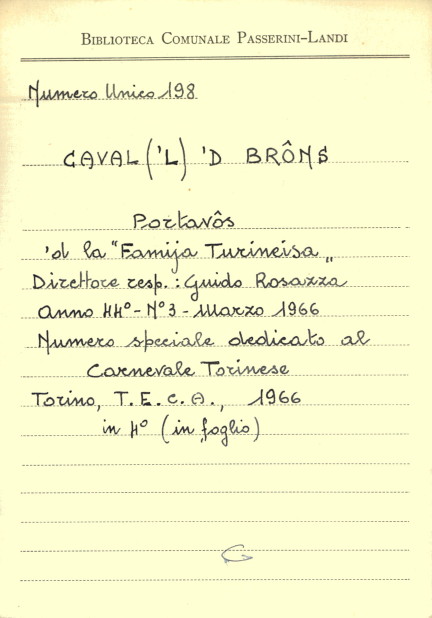 BIBLIOTECA COMUNALE PASSERINI-LANDI
Numero Unico 198
CAVAL ('L) 'D BRÔNS
Portavôs
'd la "Famija Turineisa„
Direttore resp.: Guido Rosazza
Anno 44° - N° 3 - Marzo 1966
Numero speciale dedicato al
Carnevale Torinese
Torino, T.E.C.A., 1966
in 4° (in foglio)
G